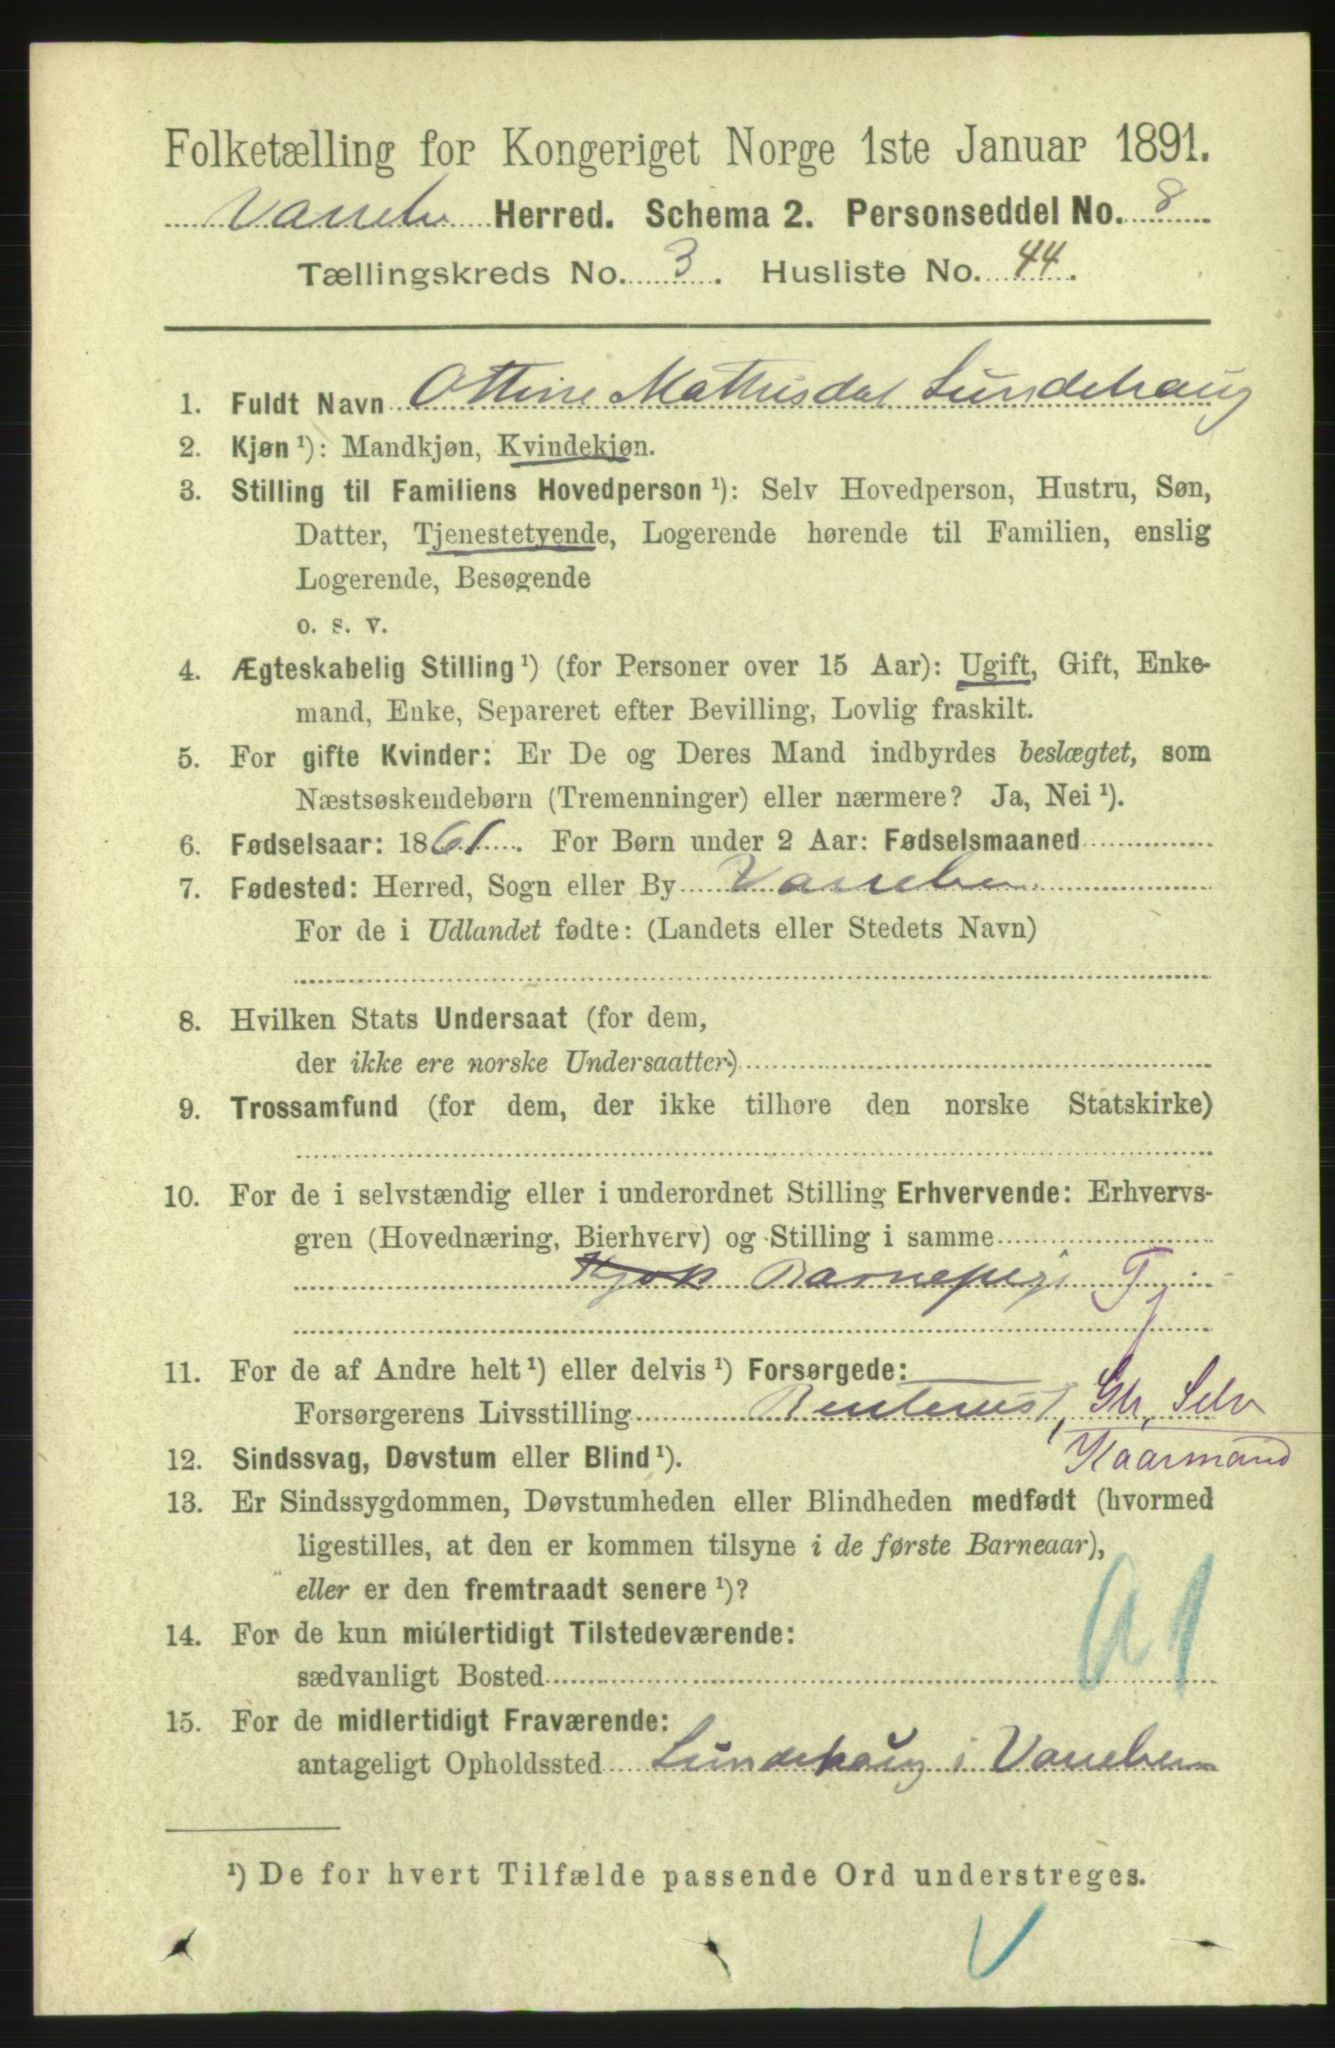 Folketælling for Kongeriget Norge 1ste Januar 1891.
Vansebu Herred. Schema 2. Personseddel No. 8
Tællingskreds No. 3. Husliste No. 44.
1. Fuldt Navn Ottine Lundehaug
2. Kjøn ¹): Mandkjøn, Kvindekjøn.
3. Stilling til Familiens Hovedperson ¹): Selv Hovedperson, Hustru, Søn,
Datter, Tjenestetyende, Logerende hørende til Familien, enslig
Logerende, Besøgende
o. s. v.
4. Ægteskabelig Stilling ¹) (for Personer over 15 Aar): Ugift, Gift, Enke-
mand, Enke, Separeret efter Bevilling, Lovlig fraskilt.
5. For gifte Kvinder: Er De og Deres Mand indbyrdes beslægtet, som
Næstsøskendebørn (Tremenninger) eller nærmere? Ja, Nei ¹).
6. Fødselsaar: 1861. For Børn under 2 Aar: Fødselsmaaned
7. Fødested: Herred, Sogn eller By
For de i Udlandet fødte: (Landets eller Stedets Navn)
8. Hvilken Stats Undersaat (for dem,
der ikke ere norske Undersaatter)
9. Trossamfund (for dem, der ikke tilhøre den norske Statskirke)
10. For de i selvstændig eller i underordnet Stilling Erhvervende: Erhvervs-
gren (Hovednæring, Bierhverv) og Stilling i samme
Kjok Barnepige Tj
11. For de af Andre helt ¹) eller delvis ¹) Forsørgede:
Forsørgerens Livsstilling Rentenist, Gb, Selv
12. Sindssvag, Døvstum eller Blind ¹). Kaarmand
13. Er Sindssygdommen, Døvstumheden eller Blindheden medfødt (hvormed
ligestilles, at den er kommen tilsyne i de første Barneaar),
eller er den fremtraadt senere ¹)?
14. For de kun midlertidigt Tilstedeværende:
sædvanligt Bosted
15. For de midlertidigt Fraværende:
antageligt Opholdssted Lundehaug i
¹) De for hvert Tilfælde passende Ord understreges.